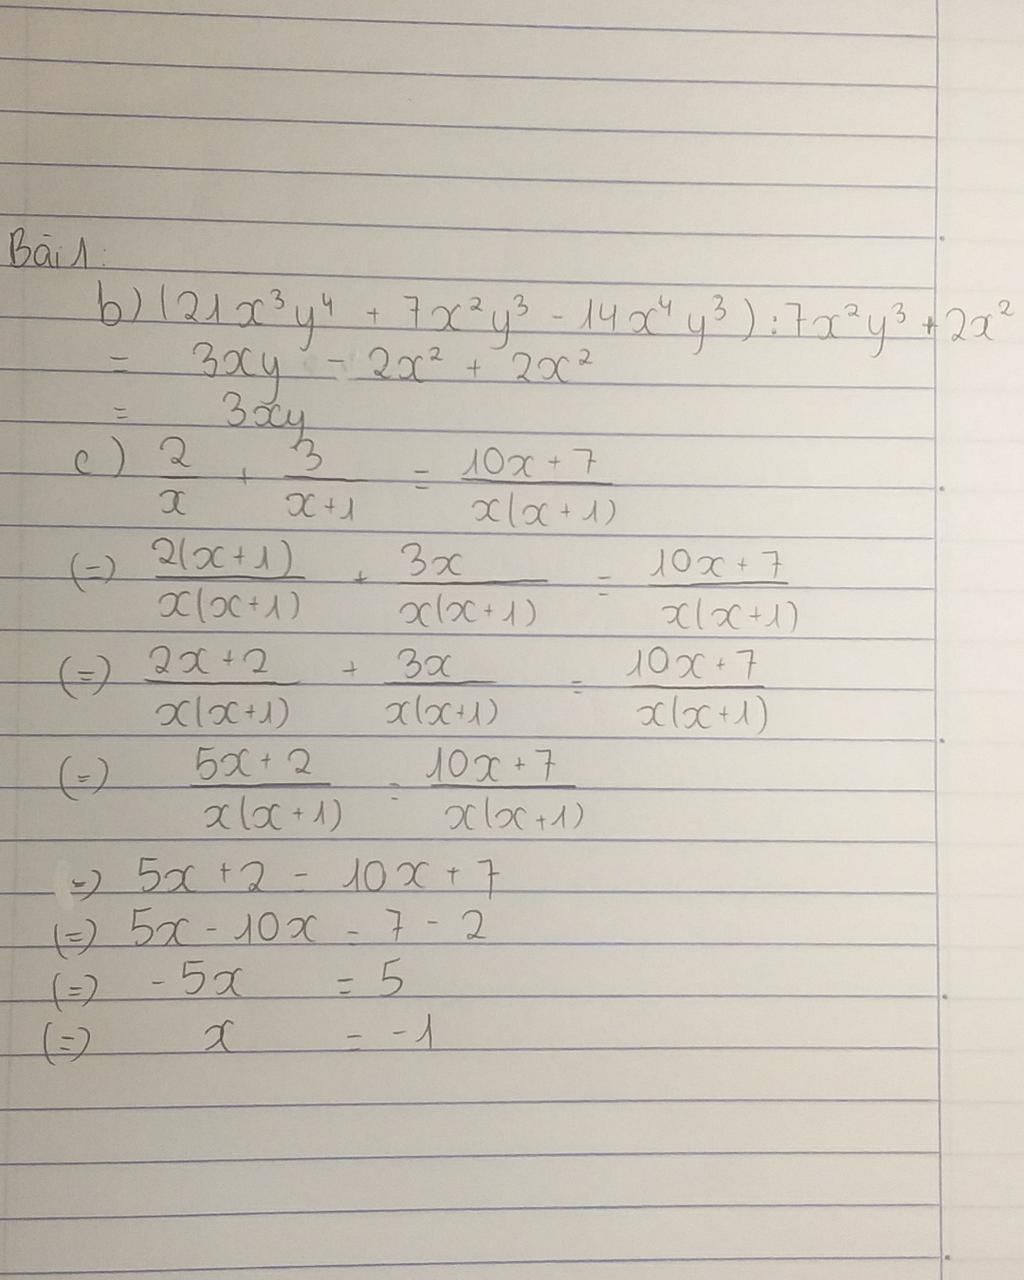 Bài 1:
b) (21x³y⁴ + 7x²y³ - 14x⁴y³) : 7x²y³ + 2x²
= 3xy - 2x² + 2x²
= 3xy
c) 2/x + 3/(x+1) = (10x+7)/(x(x+1))
(=) 2(x+1)/(x(x+1)) + 3x/(x(x+1)) = (10x+7)/(x(x+1))
(=) (2x+2)/(x(x+1)) + 3x/(x(x+1)) = (10x+7)/(x(x+1))
(=) (5x+2)/(x(x+1)) = (10x+7)/(x(x+1))
=) 5x+2 = 10x+7
(=) 5x - 10x = 7 - 2
(=) -5x = 5
(=) x = -1